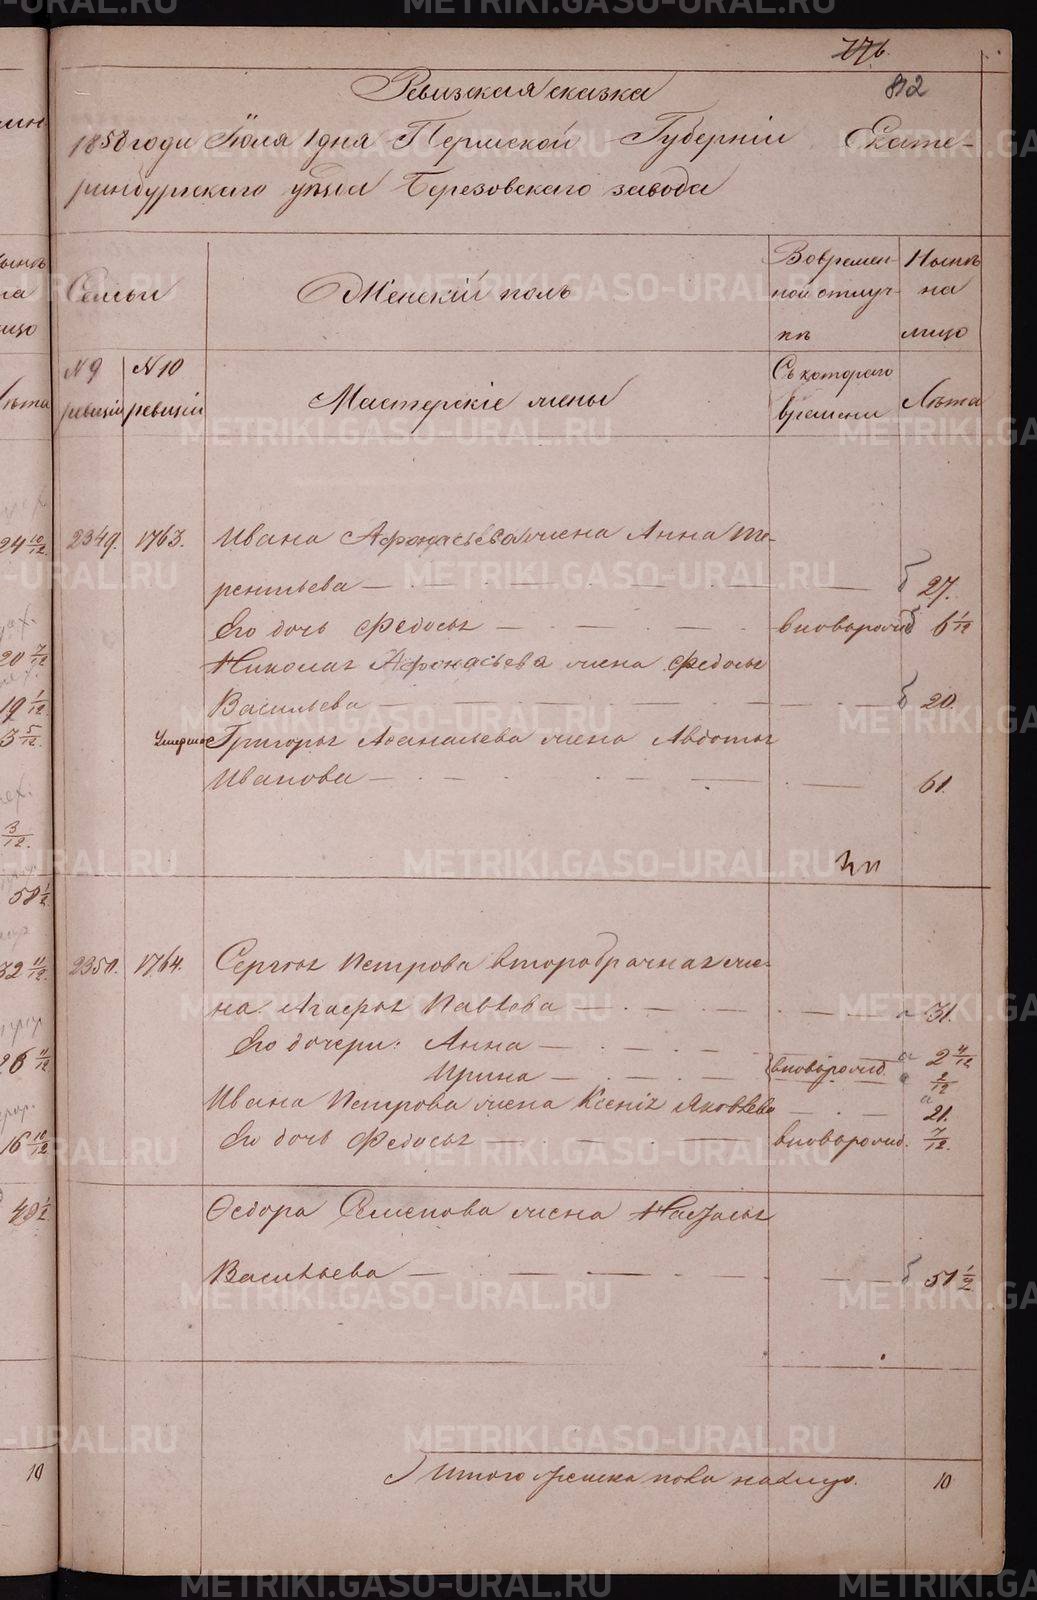 776.
812
Ревизская сказка
1858 года Июля 1 дня Пермской Губерніи Екате-
ринбургскаго уѣзда Березовскаго завода
Семьи
Женскій полъ
Вовремен-
ной отлуч-
кѣ
Нынѣ
на
лицо
N 9
ревизіи
N 10
ревизіи
Мастерскіе жены
Съ котораго
времени
Лѣта
2349. 1763. Ивана Афонасьева жена Анна Те-
рентьева — 27.
Его дочь Федосья — вноворожд 6 1/12
Николая Афонасьева жена Федосья
Васильева 20.
Умершаго Григорья Афанасьева жена Авдотья
Иванова — 61.
2350. 1764. Сергея Петрова второбрачная же-
на Агафья Павлова — 31.
Его дочери: Анна — 2 11/12
Ирина — вноворожд. 2/12
Ивана Петрова жена Ксенія Яковлева — 21.
Его дочь Федосья — вноворожд. 7/12.
Ѳедора Семенова жена Наталья
Васильева — 51 1/2
Итого женска пола налицо. 10
METRIKI.GASO-URAL.RU